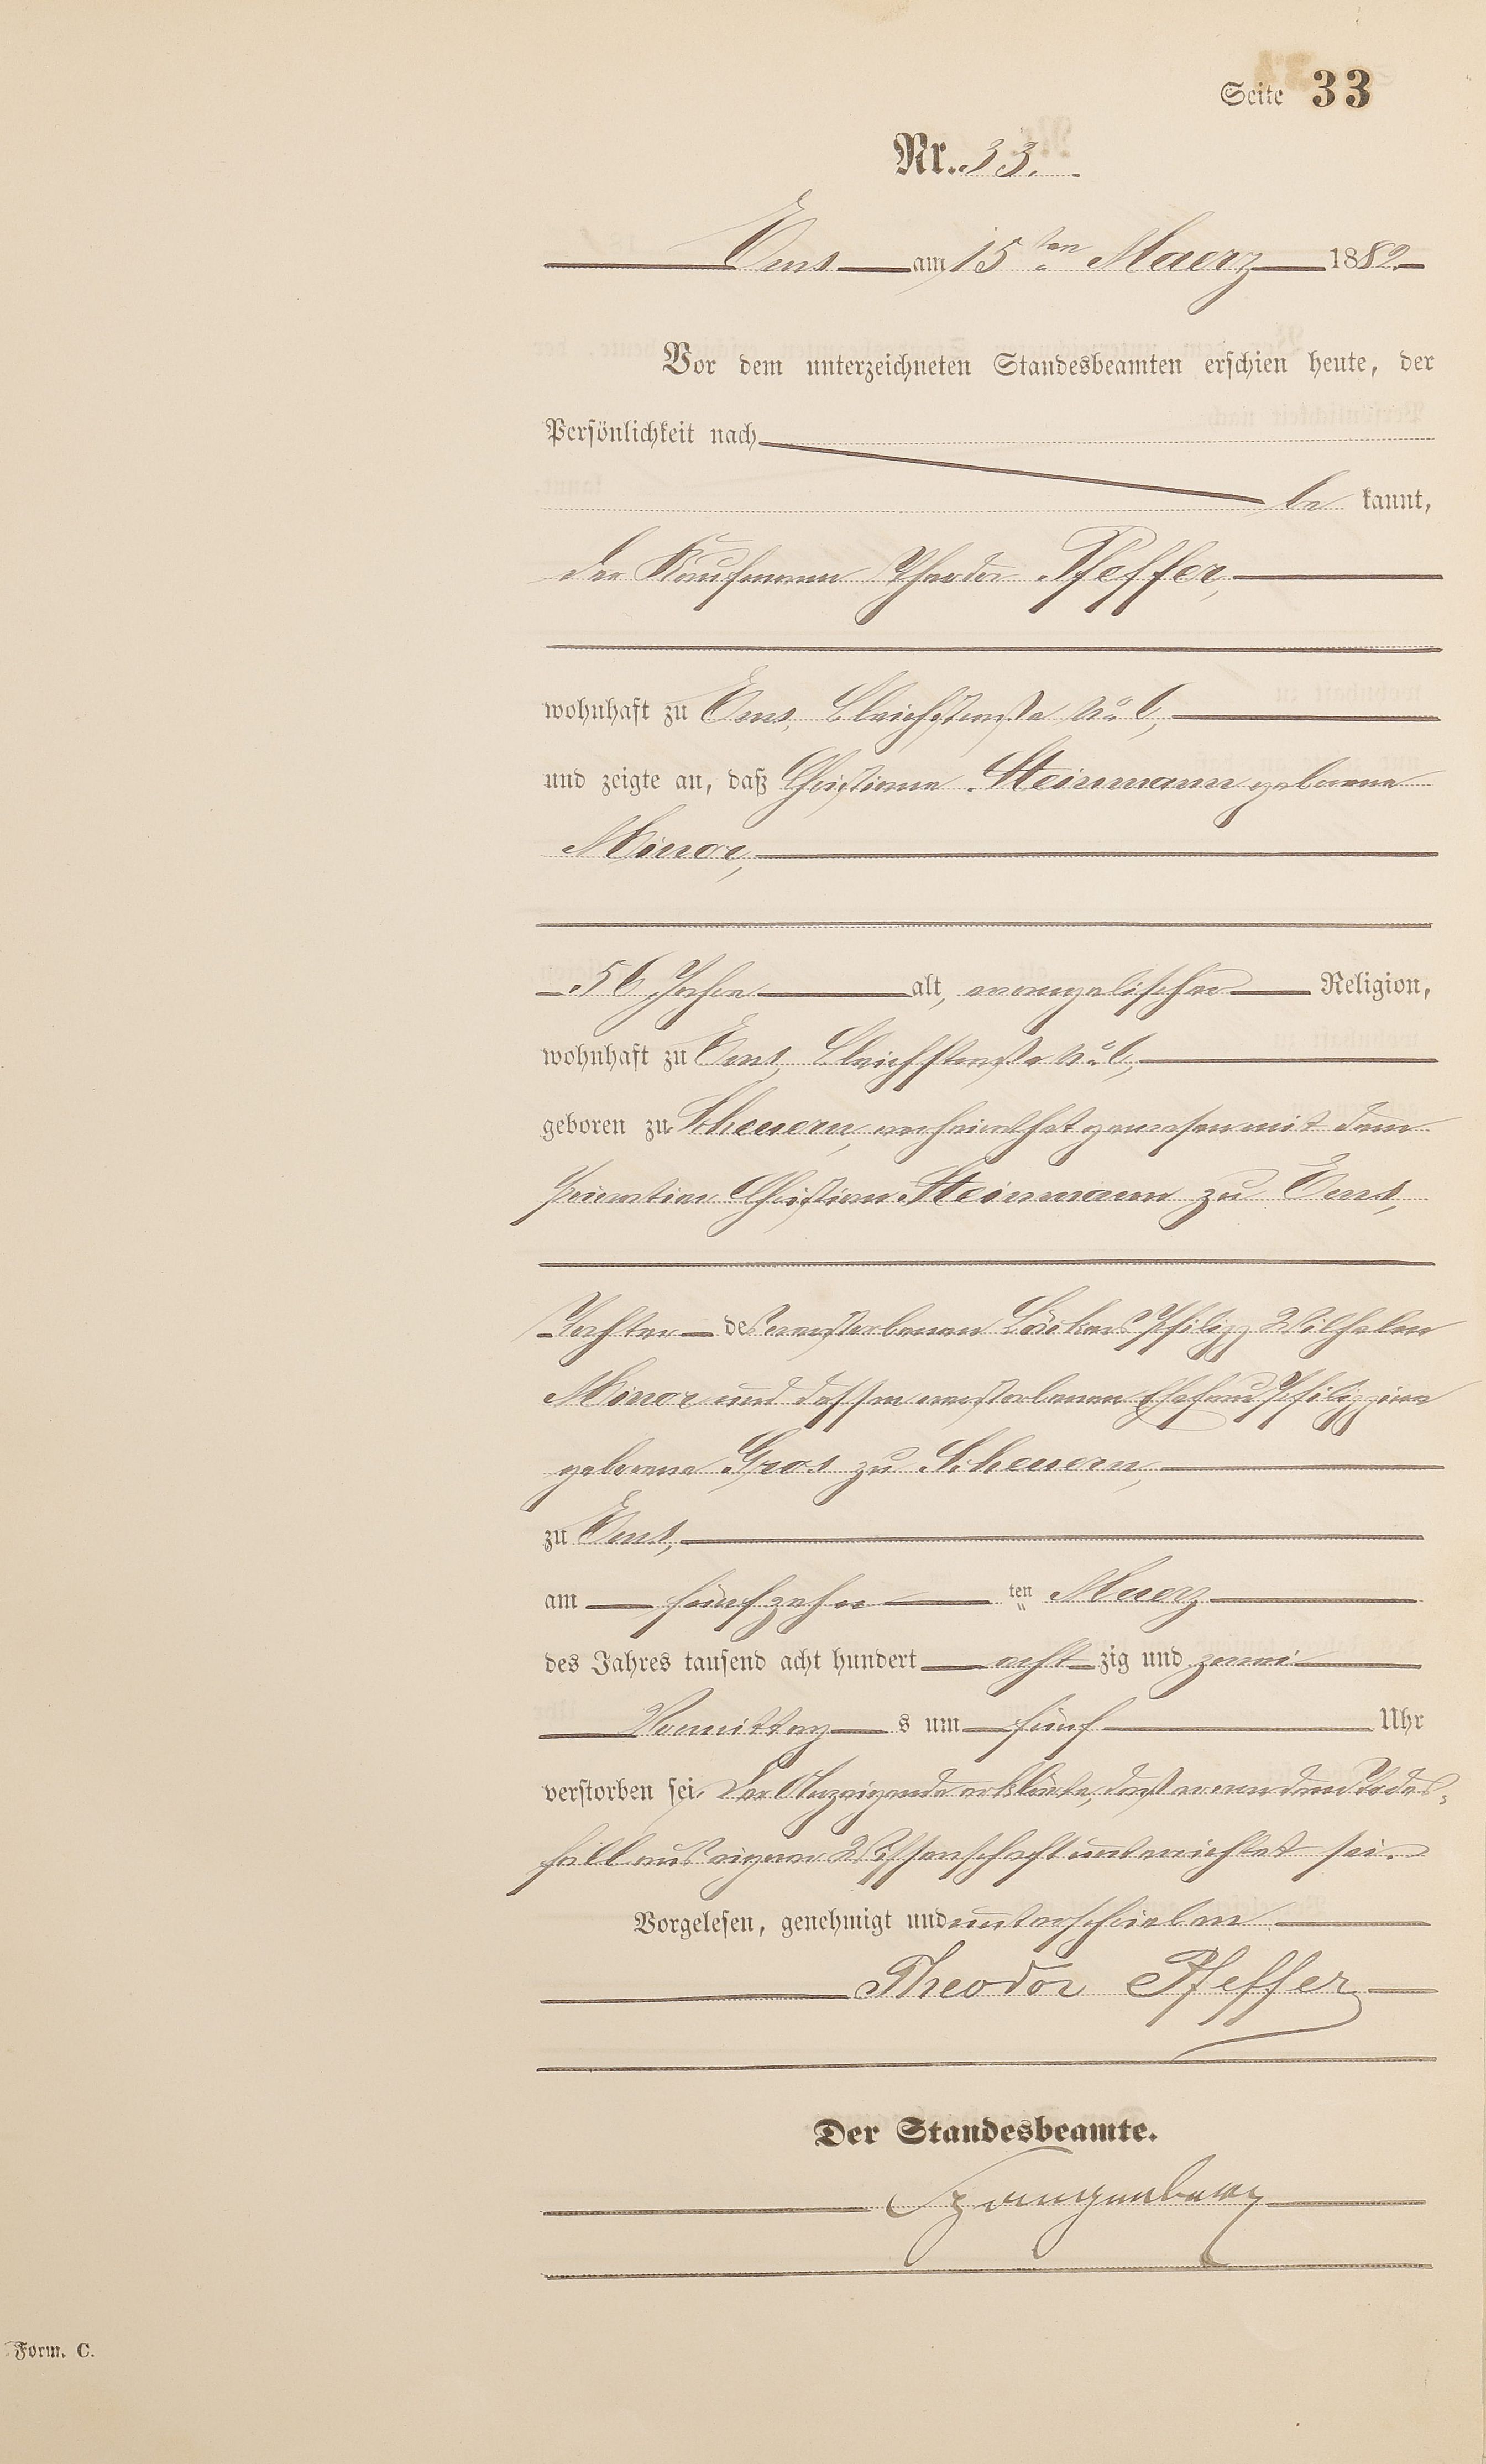 Seite 33
Nr. 33.
Ems am 15ten Maerz 1882
Vor dem unterzeichneten Standesbeamten erschien heute, der
Persönlichkeit nach
be kannt,
der Kaufmann Theodor Pfeffer,
wohnhaft zu Ems, Bleichstraße No 6,
und zeigte an, daß Christiane Steinmann geborene
Minor,
56 Jahre alt, evangelischer Religion,
wohnhaft zu Ems, Bleichstraße No 6,
geboren zu Scheuern, verheirathet gewesen mit dem
Christian Steinmann zu Ems,
Tochter des verstorbenen Bäckers Philipp Wilhelm
Minor und dessen verstorbenen Ehefrau Philippine
geborene Gros zu Scheuern,
zu Ems,
am fünfzehn ten Maerz
des Jahres tausend acht hundert acht zig und zwei
Vormittag s um fünf Uhr
verstorben sei. Der Anzeigende erklärte, daß er von dem Todes-
fall aus eigener Wissenschaft unterrichtet sei.
Vorgelesen, genehmigt und unterschrieben
Theodor Pfeffer
Der Standesbeamte.
Spangenberg
Form. C.